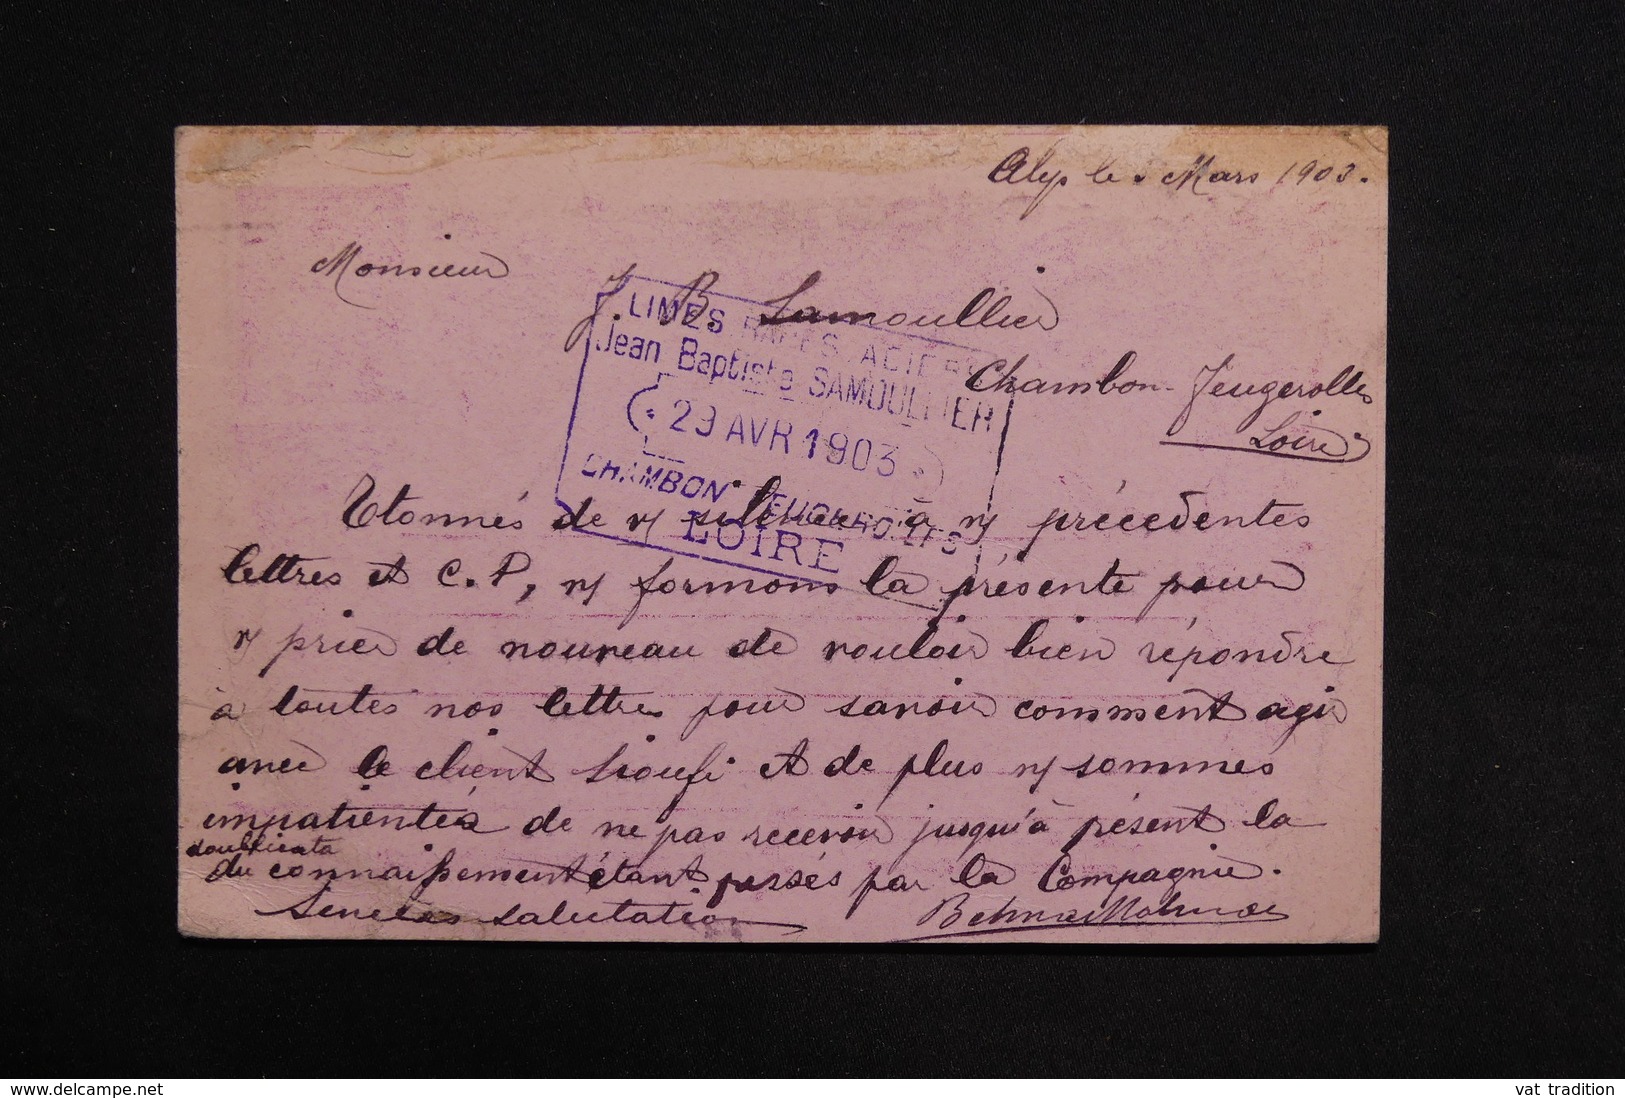 Alep le Mars 1903.
Monsieur
J. B. Samoullier
Chambon-Feugerolles
Loire
LIMES RAPES ACIERS
Jean Baptiste SAMOULLIER
29 AVR 1903
CHAMBON FEUGEROLLES
LOIRE
Etonnés de v/ silence à n/ précédentes
lettres et C.P, n/ formons la présente pour
v/ prier de nouveau de vouloir bien répondre
à toutes nos lettres pour savoir comment agir
avec le client Sioufi et de plus n/ sommes
impatientés de ne pas recevoir jusqu'à présent la
doublicata
du connaissement étant pressés par la Compagnie.
Sincères salutations
www.delcampe.net
vat_tradition